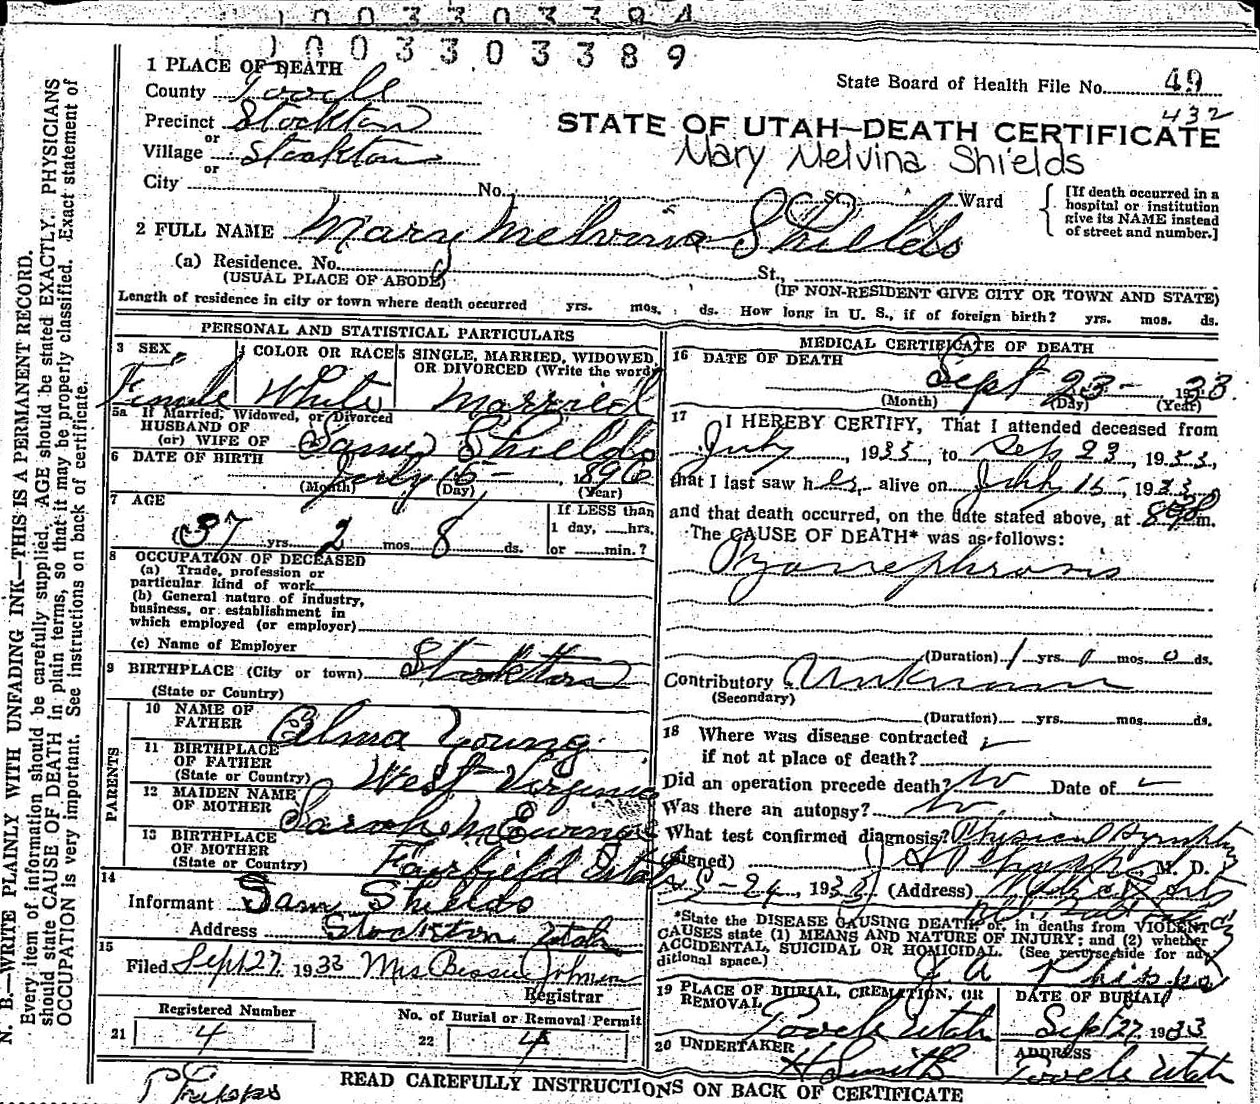 1003303389
1 PLACE OF DEATH
State Board of Health File No. 49
432
County Tooele
Precinct Stockton
or
Village Stockton
or
STATE OF UTAH—DEATH CERTIFICATE
Mary Melvina Shields
City No. St. Ward
[If death occurred in a hospital or institution give its NAME instead of street and number.]
2 FULL NAME Mary Melvina Shields
(a) Residence. No. St.,
(USUAL PLACE OF ABODE)
(IF NON-RESIDENT GIVE CITY OR TOWN AND STATE)
Length of residence in city or town where death occurred yrs. mos. ds. How long in U. S., if of foreign birth? yrs. mos. ds.
PERSONAL AND STATISTICAL PARTICULARS
3 SEX Female
4 COLOR OR RACE White
5 SINGLE, MARRIED, WIDOWED, OR DIVORCED (Write the word) Married
5a If Married, Widowed, or Divorced
HUSBAND OF
(or) WIFE OF Sam Shields
6 DATE OF BIRTH July 15 1896
(Month) (Day) (Year)
7 AGE
37 yrs. 2 mos. 8 ds.
If LESS than
1 day, hrs.
or min.?
8 OCCUPATION OF DECEASED
(a) Trade, profession or
particular kind of work
(b) General nature of industry,
business, or establishment in
which employed (or employer)
(c) Name of Employer
9 BIRTHPLACE (City or town) Stockton
(State or Country)
PARENTS
10 NAME OF
FATHER Alma Young
11 BIRTHPLACE
OF FATHER
(State or Country) West Virginia
12 MAIDEN NAME
OF MOTHER Sarah
13 BIRTHPLACE
OF MOTHER
(State or Country) Fairfield Utah
14
Informant Sam Shields
Address Stockton Utah
15
Filed Sept 27 1933 Mrs Bessie Johnson
Registrar
Registered Number
21 4
No. of Burial or Removal Permit
22 4
MEDICAL CERTIFICATE OF DEATH
16 DATE OF DEATH
Sept 23- 1933.
(Month) (Day) (Year)
17 I HEREBY CERTIFY, That I attended deceased from
July, 1933, to Sep 23, 1933,
that I last saw her alive on July 15, 1933
and that death occurred, on the date stated above, at m.
The CAUSE OF DEATH* was as follows:
Pyonephrosis
(Duration) 1 yrs. mos. 0 ds.
Contributory Unknown
(Secondary)
(Duration) yrs. mos. ds.
18 Where was disease contracted
if not at place of death?
Did an operation precede death? No Date of
Was there an autopsy? No
What test confirmed diagnosis? Physical Symptoms
(Signed) M. D.
9-24, 1933 (Address)
*State the DISEASE CAUSING DEATH, or, in deaths from VIOLENT
CAUSES state (1) MEANS AND NATURE OF INJURY; and (2) whether
ACCIDENTAL, SUICIDAL OR HOMICIDAL. (See reverse side for additional space.)
J A Phipps
19 PLACE OF BURIAL, CREMATION, OR
REMOVAL Tooele Utah
DATE OF BURIAL
Sept 27, 1933
20 UNDERTAKER
H Smith
ADDRESS
Tooele Utah
Phipps
READ CAREFULLY INSTRUCTIONS ON BACK OF CERTIFICATE
N. B.—WRITE PLAINLY WITH UNFADING INK—THIS IS A PERMANENT RECORD.
Every item of information should be carefully supplied. AGE should be stated EXACTLY. PHYSICIANS
should state CAUSE OF DEATH in plain terms, so that it may be properly classified. Exact statement of
OCCUPATION is very important. See instructions on back of certificate.